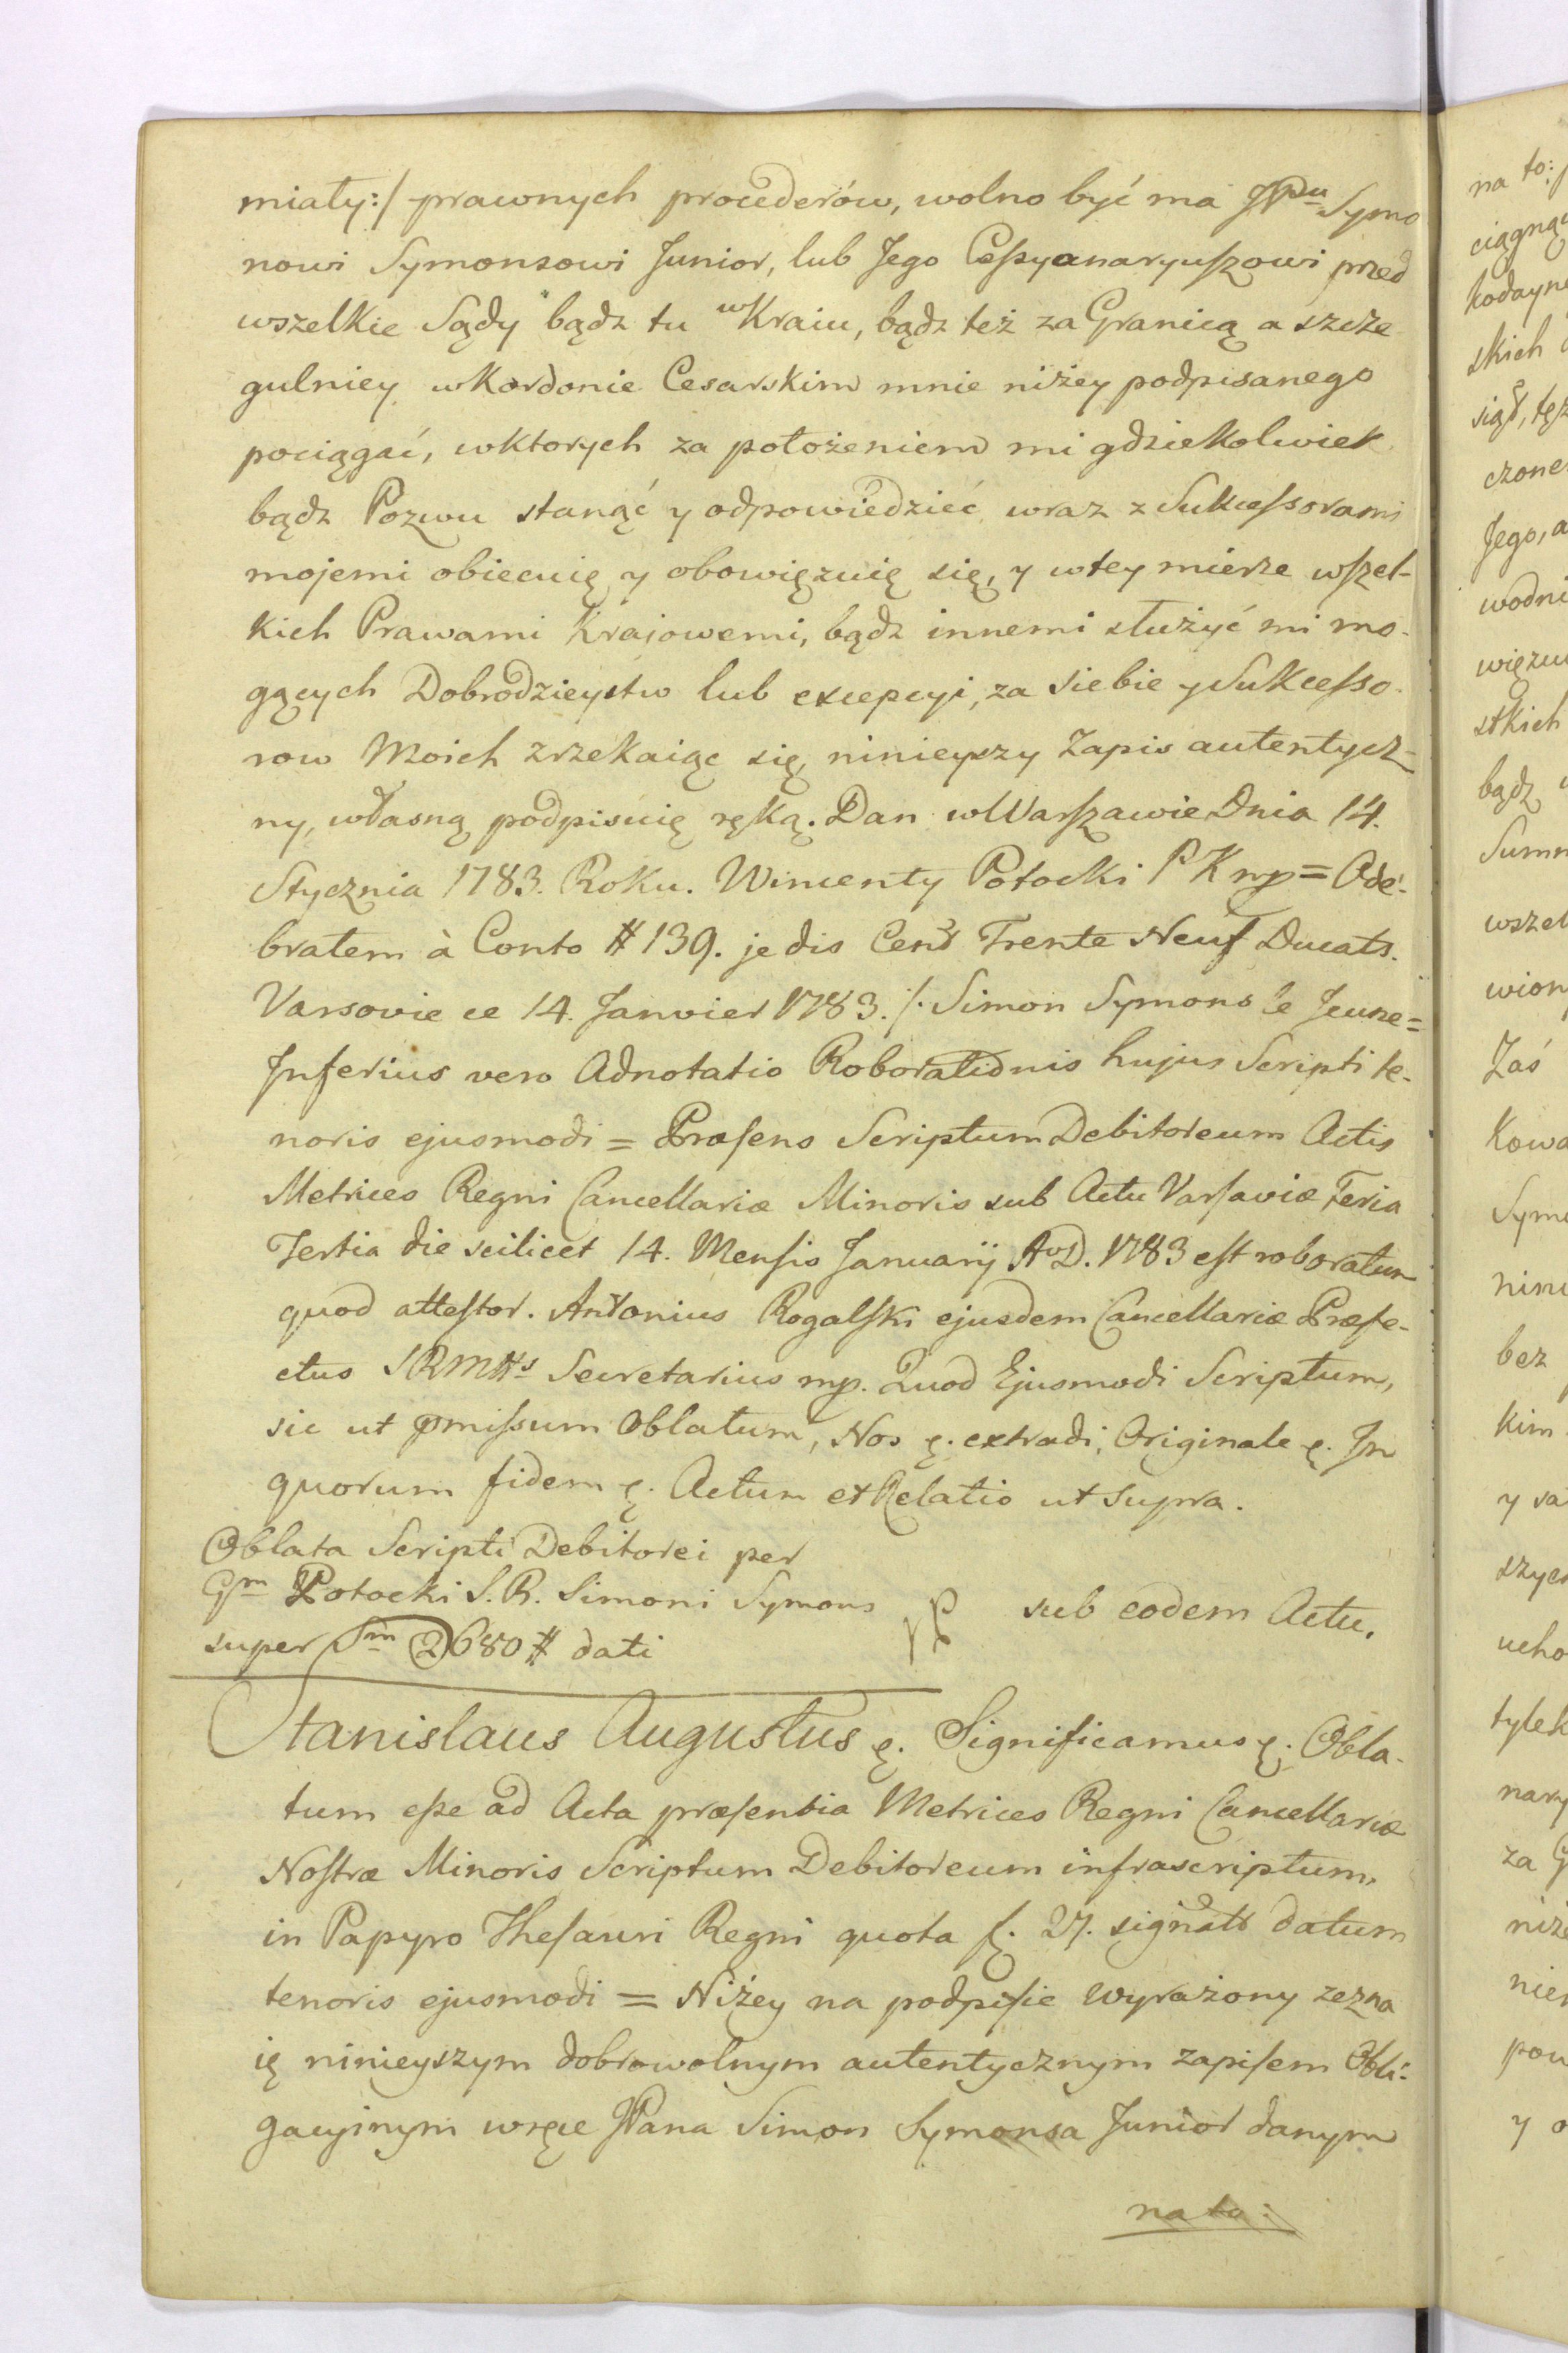 miały:/ prawnych procederów, wolno być ma JPanu Symo
nowi Symonsowi Junior, lub Jego Cessyonaryuszowi przed
wszelkie Sądy bądz tu w Kraiu, bądz też za Granicą a szcze
gulniey w Kordonie Cesarskim mnie niżey podpisanego
pociągać, w ktorych za położeniem mi gdziekolwiek
bądz Pozwu stanąć y odpowiedzieć wraz z Sukcessorami
mojemi obiecuię y obowięzuię się, y w tey mierze wszel-
kich Prawami Krajowemi, bądz innemi służyć mi mo-
gących Dobrodzieystw lub excepcyi, za siebie y Sukcesso-
row Moich zrzekaiąc się, ninieyszy Zapis autentycz-
ny, własną podpisuię ręką. Dan w Warszawie Dnia 14.
Stycznia 1783. Roku. Wincenty Potocki PK mp = Ode-
brałem à Conto # 139. je dis Cent Trente Neuf Ducats.
Varsovie ce 14. Janvier 1783. /. Simon Symons le Jeune =
Inferius vero Adnotatio Roborationis hujus Scripti te-
noris ejusmodi = Præsens Scriptum Debitoreum Actis
Metrices Regni Cancellariæ Minoris sub Actu Varsaviæ Feria
Tertia die scilicet 14. Mensis Januarij AoD. 1783 est roboratum
quod attestor. Antonius Rogalski ejusdem Cancellariæ Præfe-
ctus SRMttis Secretarius mp. Quod Ejusmodi Scriptum,
sic ut pmissum Oblatum, Nos &. extradi, Originale &. In
quorum fidem &. Actum et Relatio ut supra.
Oblata Scripti Debitorei per
Gm Potocki S. R. Simoni Symons
super Sm 2680 # dati
sub eodem Actu.
Stanislaus Augustus &. Significamus &. Obla-
tum esse ad Acta præsentia Metrices Regni Cancellariæ
Nostræ Minoris Scriptum Debitoreum infrascriptum,
in Papyro Thesauri Regni quota f. 27. signato datum
tenoris ejusmodi = Niżey na podpisie wyrażony zezna
ię ninieyszym dobrowolnym autentycznym zapisem Obli-
gacyinym w ręce JPana Simon Symonsa Junior danym
na to:
na to:
ciągną
kodayn
skich
siąd, tęż
czone
Jego, a
wodni
więzu
stkich
bądz
Summ
wszel
wion
Zaś
Kowa
Symo
nini
bez
kim
y sa
szych
ucho
tylek
nary
za G
niże
nien
pow
y o